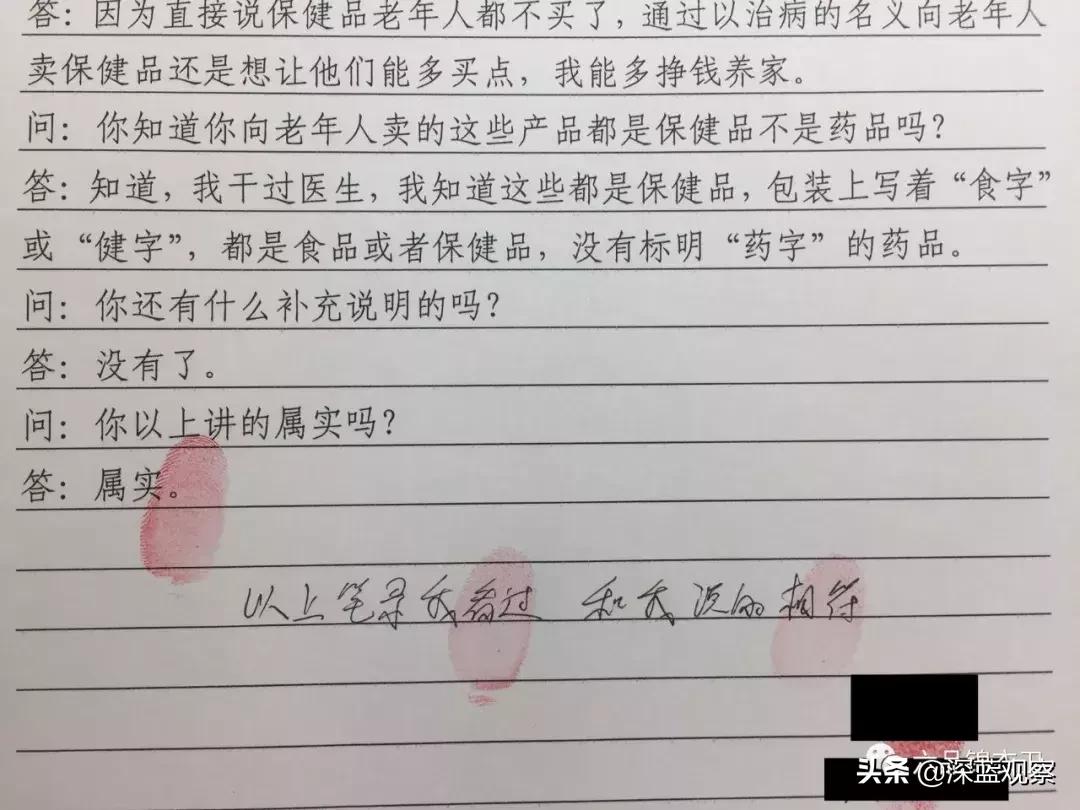 答：因为直接说保健品老年人都不买了，通过以治病的名义向老年人
卖保健品还是想让他们能多买点，我能多挣钱养家。
问：你知道你向老年人卖的这些产品都是保健品不是药品吗？
答：知道，我干过医生，我知道这些都是保健品，包装上写着“食字”
或“健字”，都是食品或者保健品，没有标明“药字”的药品。
问：你还有什么补充说明的吗？
答：没有了。
问：你以上讲的属实吗？
答：属实。
以上笔录我看过 和我说的相符
六品锦衣卫
头条 @深蓝观察